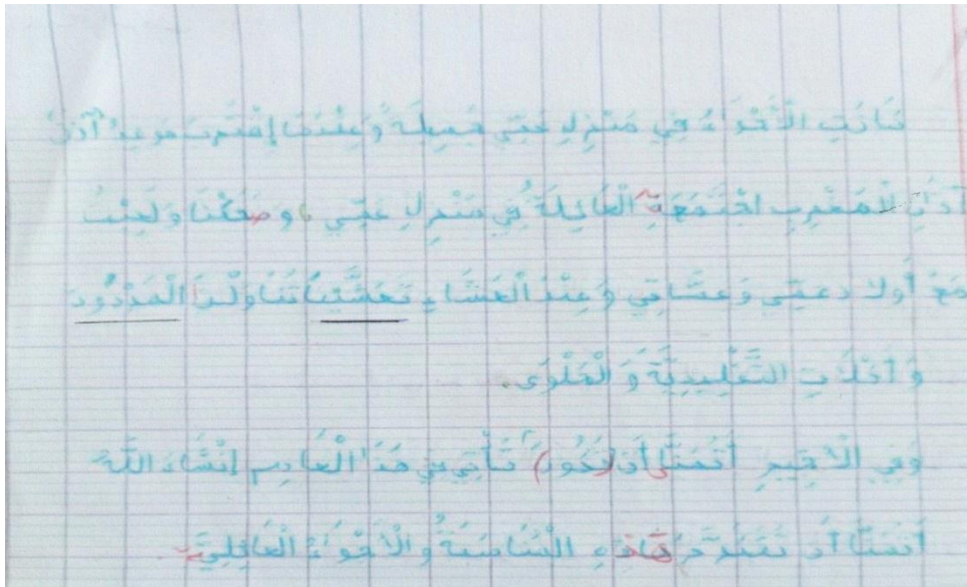 كَانَتِ الْأَجْوَاءُ فِي مَنْزِلِ عَمِّي جَمِيلَةً وَعِنْدَمَا إِقْتَرَبَ مَوْعِدُ آذَانِ
آذَانِ لْمَغْرِبِ اجْتَمَعَةِ الْعَائِلَةُ فِي مَنْزِلِ عَمِّي، وضَحَكْنَا وَلَعِبْتُ
مَعَ أَولادِ عمِّي وَعمَّاتِي وَعِنْدَ الْعَشَاءِ تَعَشَّيْنَا تَنَاوَلْنَا الْمَرْدُودَ
وَ أكَلَاتِ التَّقْلِيدِيَّةَ وَ الْحَلْوَى.
وَفِي الْأَخِيرِ أَتَمَنَّى أَن (يَكُونَ) تَأْتِي فِي هَذَا الْعَامِ إِنْشَاءَ اللَّهُ
أَتَمَنَّا أَن تَتَكَرَّرَ هَاذِهِ الْمُنَاسَبَةُ وَالْأَجْوَاءُ الْعَائِلِيَّةِ.